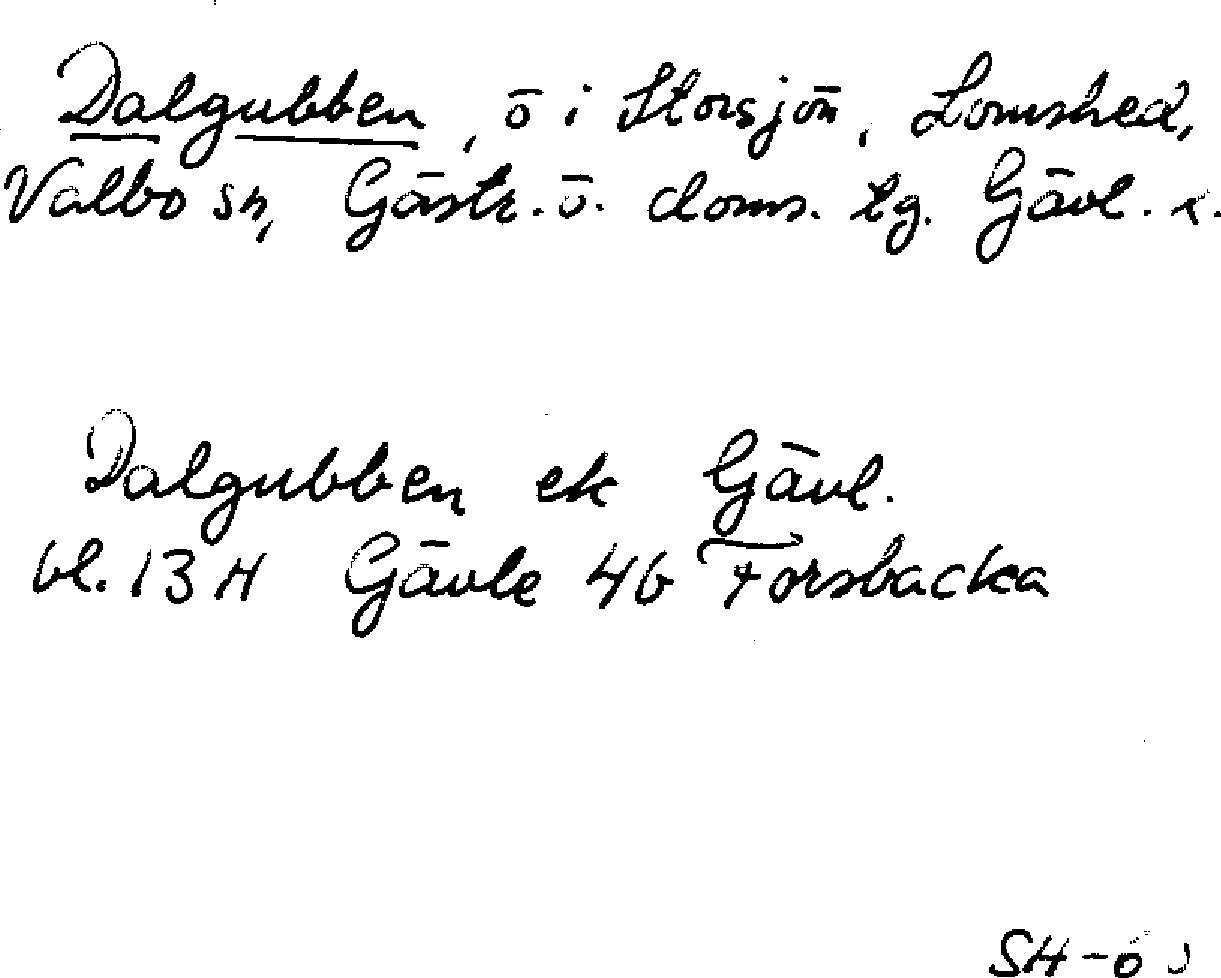 Dalgubben, ö i Storsjön, Lomshed,
Valbo sn, Gästr. ö. doms. tg. Gävl. l.
Dalgubben ek Gävl.
bl. 13 H Gävle 4b Forsbacka
SH-6